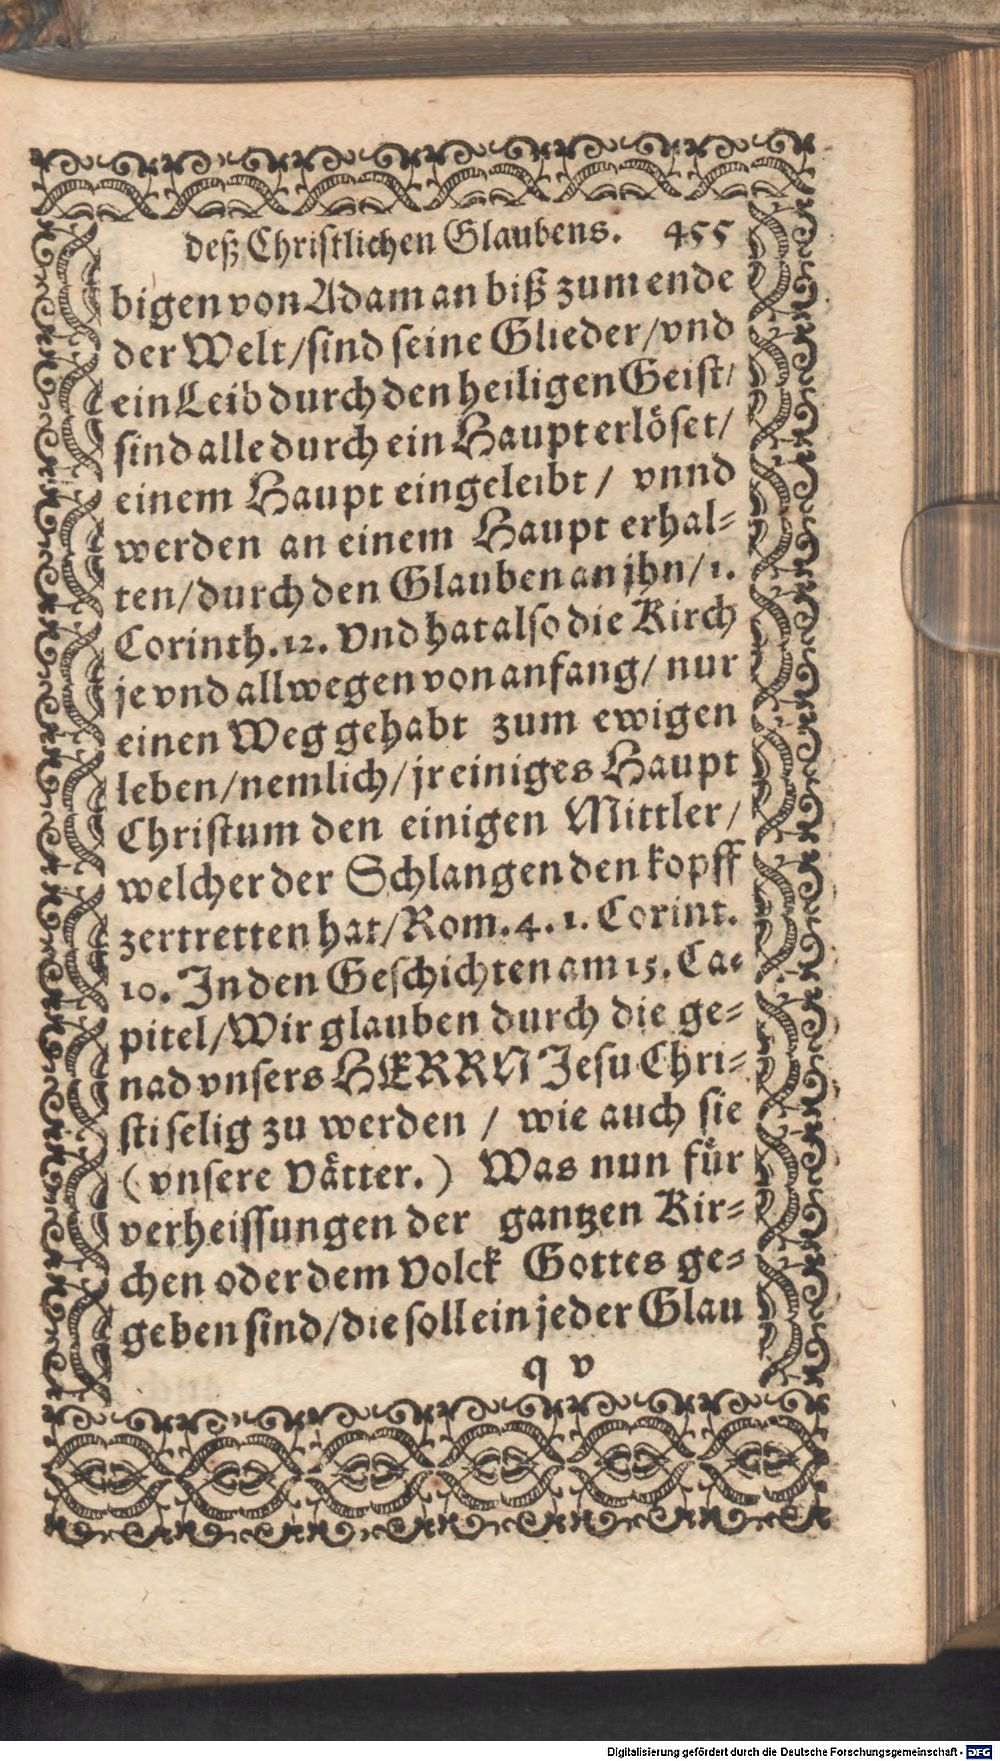 deß Christlichen Glaubens. 455
bigen von Adam an biß zum ende
der Welt/sind seine Glieder/vnd
ein Leib durch den heiligen Geist/
sind alle durch ein Haupt erlöset/
einem Haupt eingeleibt / vnnd
werden an einem Haupt erhal-
ten/durch den Glauben an jhn/1.
Corinth.12. Vnd hat also die Kirch
je vnd allwegen von anfang/ nur
einen Weg gehabt zum ewigen
leben/nemlich/jr einiges Haupt
Christum den einigen Mittler/
welcher der Schlangen den kopff
zertretten hat/Rom.4.1. Corint.
10. In den Geschichten am 15. Ca-
pitel/Wir glauben durch die ge-
nad vnsers HERRN Jesu Chri-
sti selig zu werden / wie auch sie
(vnsere Vätter.) Was nun für
verheissungen der gantzen Kir-
chen oder dem Volck Gottes ge-
geben sind/die soll ein jeder Glau
q v
Digitalisierung gefördert durch die Deutsche Forschungsgemeinschaft - DFG